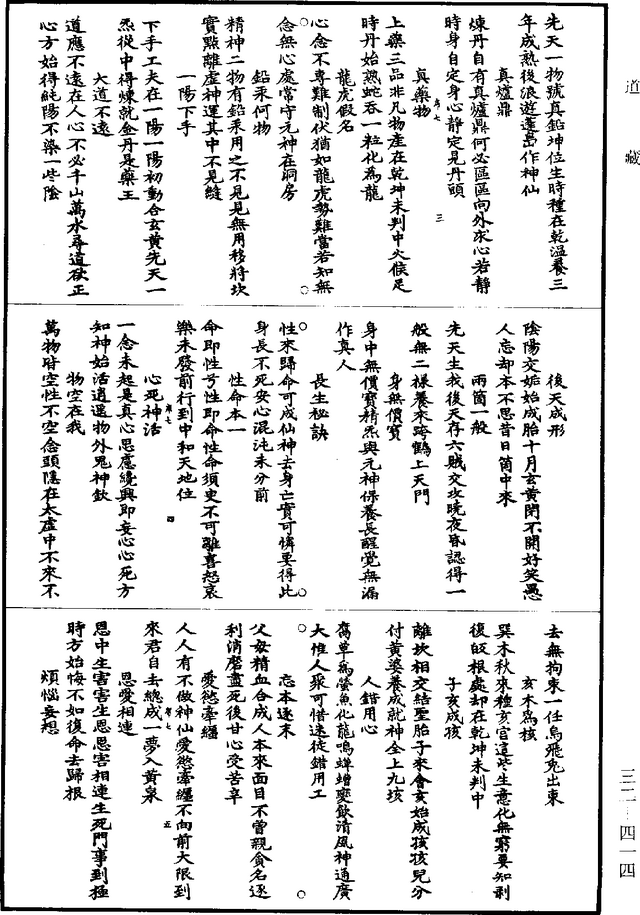 道藏
先天一物號真鉛坤位生時種在乾溫養三
年成熟後浪遊蓬島作神仙
真爐鼎
煉丹自有真爐鼎何必區區向外求心若靜
時身自定身心靜定見丹頭
真藥物
序七
三
上藥三品非凡物產在乾坤未判中火候足
時丹始熟蛇吞一粒化為龍
龍虎假名
心念不專難制伏猶如龍虎勢難當若知無
念無心處常守元神在洞房
鉛汞何物
精神二物有鉛汞用之不見見無用移將坎
實點離虛神運其中不見縫
一陽下手
下手工夫在一陽一陽初動合玄黃先天一
炁從中得煉就金丹是藥王
大道不遠
道應不遠在人心不必千山萬水尋道欲正
心方始得純陽不染一些陰
後天成形
陰陽交姤始成胎十月玄黃閉不開好笑愚
人忘却本不思昔日箇中來
兩箇一般
先天生我後天存六賊交攻曉夜昏認得一
般無二樣養來跨鶴上天門
身無價寶
身中無價寶精炁與元神保養長醒覺無漏
作真人
長生秘訣
性來歸命可成仙神去身亡實可憐要得此
身長不死安心混沌未分前
性命本一
命即性兮性即命性命須臾不可離喜怒哀
樂未發前行到中和天地位
心死神活
序七
四
一念未起是真心思慮纔興即妄心心死方
知神始活逍遥物外鬼神欽
物空在我
萬物皆空性不空念頭隱在太虛中不來不
去無拘束一任烏飛兔出東
亥木為核
巽木秋來種亥宮這些生意化無窮要知剥
復皈根處却在乾坤未判中
子亥成孩
離坎相交結聖胎子來會亥始成孩孩兒分
付黃婆養成就神全上九垓
人錯用心
腐草為螢魚化龍鳴蟬蟾變飲清風神通廣
大惟人聚可惜迷徒錯用工
忘本逐末
父母精血合成人本來面目不曾親貪名逐
利消磨盡死後甘心受苦辛
愛慾牽纏
人人有不做神仙愛慾牽纏不向前大限到
五
來君自去總成一夢入黃泉
恩愛相連
恩中生害害生恩恩害相連生死門事到極
時方始悔不如復命去歸根
煩惱妄想
三二—四一四